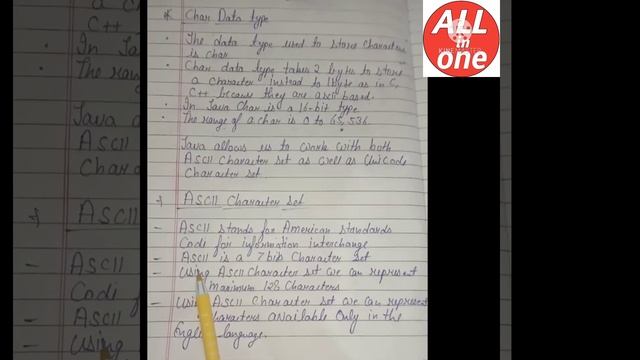 * Char Data type
• The data type used to store characters
is char
• Char data type takes 2 bytes to store
a character instead to 1 byte as in C,
C++ because they are ascii based.
• In Java char is a 16-bit type
• The range of a char is 0 to 65,536.
Java allows us to work with both
ASCII Character set as well as Unicode
Character set.
→ ASCII Character set
- ASCII stands for American standards
Code for information interchange
- ASCII is a 7 bit Character set
- Using ASCII Character set we can represent
maximum 128 Characters
- Using ASCII Character set we can represent
Characters available Only in the
English language.
ALL
in
one
C++
• In Java
• The range
Java a
ASCII
Chara
→ ASCII
- ASCII
Codi
- ASCII
- Using